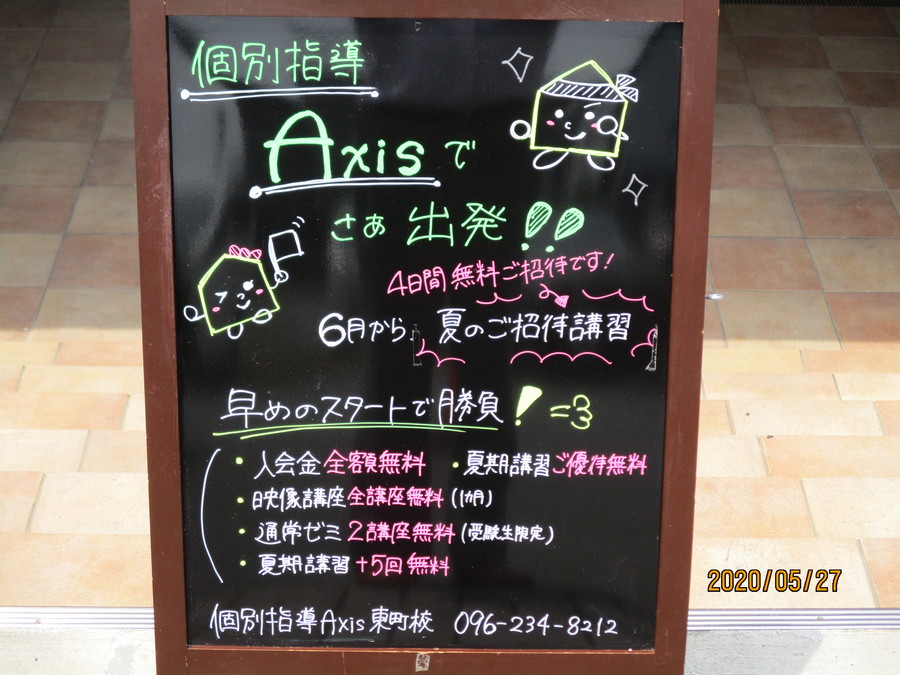 個別指導
Axisで
さぁ 出発!!
4日間無料ご招待です!
6月から 夏のご招待講習
早めのスタートで勝負! =3
・入会金全額無料 ・夏期講習ご優待無料
・映像講座全講座無料(1ヶ月)
・通常ゼミ2講座無料(受験生限定)
・夏期講習+5回無料
個別指導Axis東町校 096-234-8212
2020/05/27